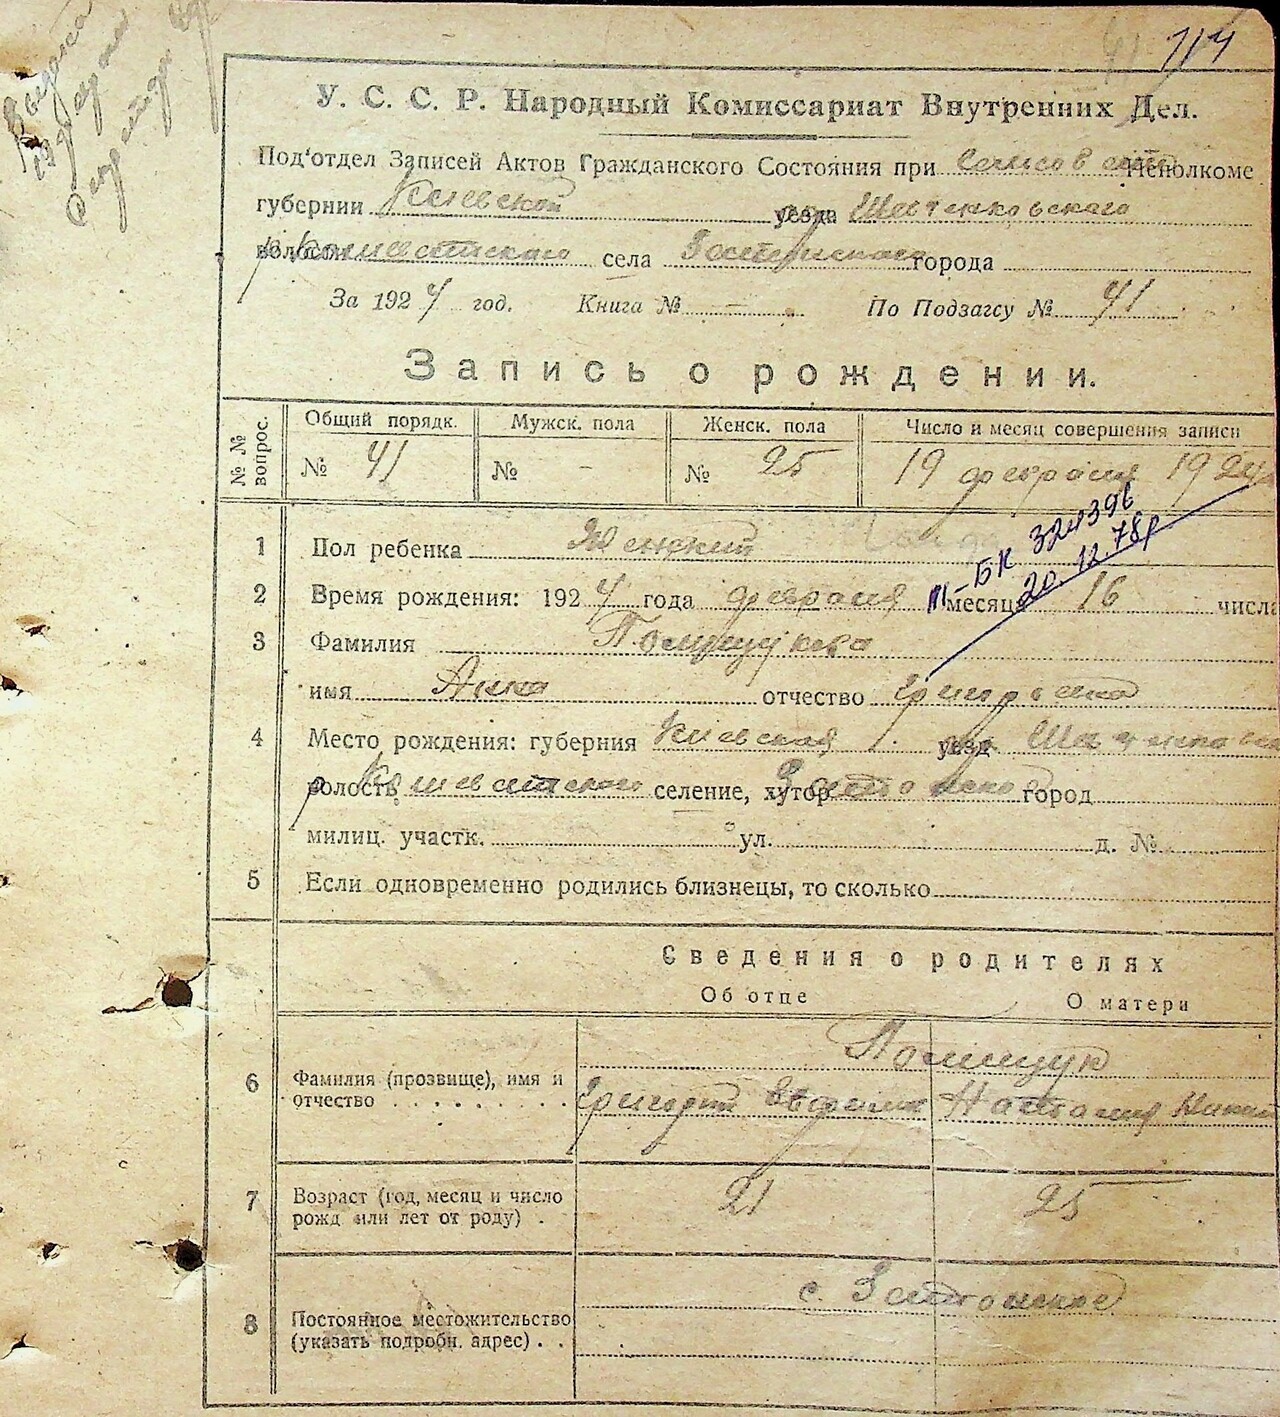 114
41
У. С. С. Р. Народный Комиссариат Внутренних Дел.
Под'отдел Записей Актов Гражданского Состояния при Исполкоме
губернии Киевской уезда Шевченковского
волости села города
За 1924 год. Книга № — По Подзагсу № 41
Запись о рождении.
№ № вопрос.
Общий порядк. Мужск. пола Женск. пола Число и месяц совершения записи
№ 41 № - № 25 19 февраля 1924
1 Пол ребенка Женский
III-БК 324396
20.12.78р
2 Время рождения: 1924 года февраля месяца 16 числа
3 Фамилия Полищукова
имя Анна отчество
4 Место рождения: губерния Киевская уезд
волость селение, хутор город
милиц. участк. ул. д. №
5 Если одновременно родились близнецы, то сколько
Сведения о родителях
Об отце О матери
6 Фамилия (прозвище), имя и Полищук
отчество . . . . . . . . Григорий Настасия
7 Возраст (год, месяц и число 21 25
рожд или лет от роду) .
с.
8 Постоянное местожительство
(указать подробн. адрес) . .